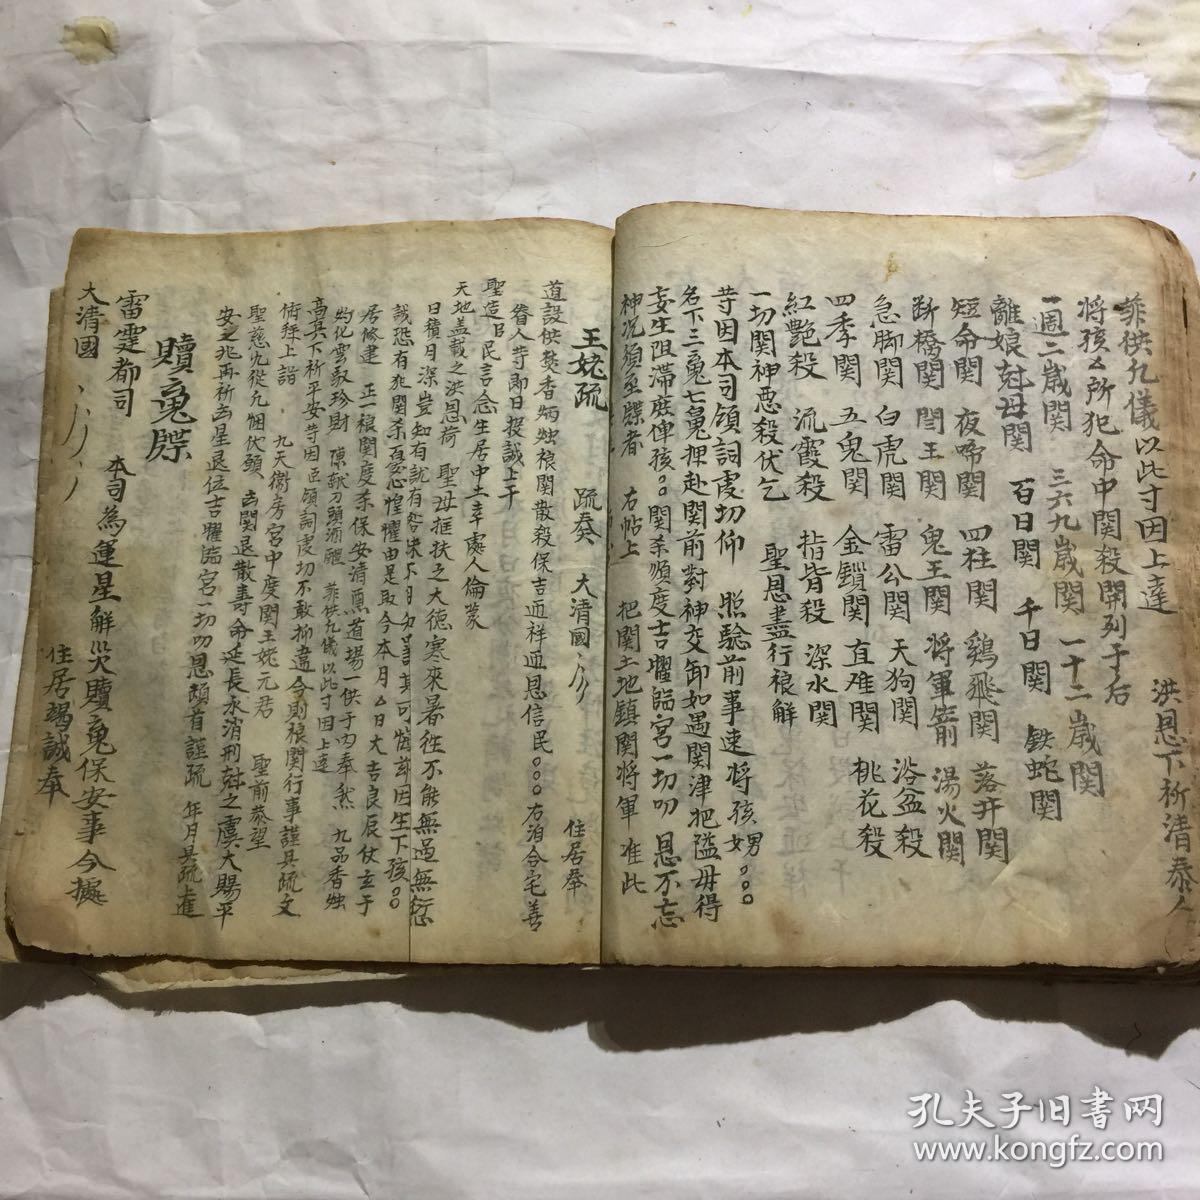 菲供九儀以此寸因上達　洪恩下祈清泰人
將孩厶所犯命中関殺開列于后
一週二歳関　三六九歳関　一十二歳関
離娘尅母関　百日関　千日関　鉄蛇関
短命関　夜啼関　四柱関　鷄飛関　落井関
断橋関　閆王関　鬼王関　将軍箭　湯火関
急脚関　白虎関　雷公関　天狗関　浴盆殺
四季関　五鬼関　金鎖関　直难関　桃花殺
紅艶殺　流霞殺　指背殺　深水関
一切関神悪殺伏乞　聖恩盡行禳解
苛因本司領詞虔切仰　照驗前事速將孩男女。。。
名下三䰟七䰟押赴関前對神交卸如遇関津把隘毋得
妄生阻滞庶俾孩。。関杀順度吉耀臨宮一切叨　恩不忘
神況須至牒者　右帖上　把関土地鎮関将軍　准此
王姥疏　疏奏　大清國　住居奉
道設供焚香炳烛禳関散殺保吉迊祥迊恩信民。。。右洎合宅善
眷人䓁即日投誠上干
聖造日民言念生居中土幸處人倫蒙
天地盖載之洪恩荷　聖母抠扶之大德寒來暑徃不能無過無愆
日積月深豈知有
誠恐有犯関杀憂惶懼由是取今本月厶日大吉良辰仗玄于
居修建　正一禳関度杀保安清醮道場一供于内奉
灼化雲馭珍財　陳献刀頭酒醴　菲供九儀以此寸因上達　九品香烛
高真下祈平安䓁因臣領詞虔切不敢抑違今則禳関行事謹具疏文
俯拜上詣　九天衛房宮中度関王姥元君　聖前恭望
聖慈允從凡悃伏願　凶関退散寿命延長永消刑尅之虞大賜平
安之兆再祈凶星退位吉耀臨宮一切叨恩頓首謹疏　年月具疏上進
贖䰟牒
雷霆都司　本司為運星解災贖䰟保安事今㨿
大清國　住居竭誠奉
孔夫子旧书网
www.kongfz.com